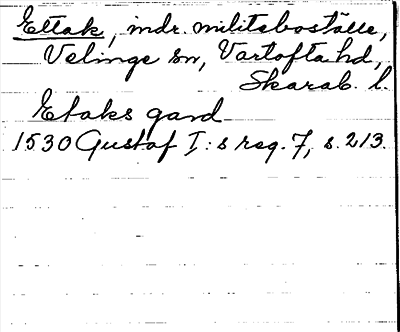 Ettak, mdr. militieboställe,
Velinge sn, Vartofta hd,
Skarab. l.
Etaks gard
1530 Gustaf I:s reg. 7, s. 213.